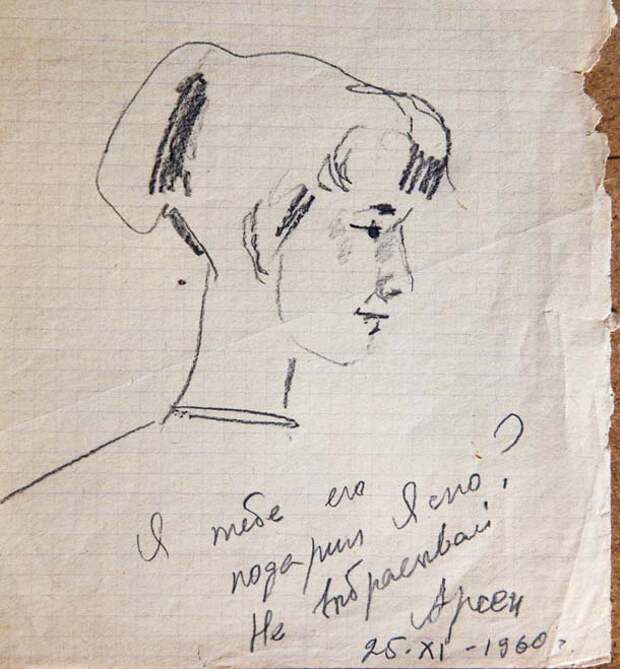 Я тебе его
подарил Ясно?
Не выбрасывай
Арсен
25.XI-1960г.